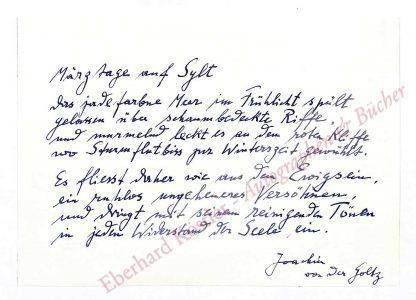 Märztage auf Sylt
Das jadefarbne Meer im Frühlicht spült
gelassen über schaumbedeckte Riffe,
und murmelnd leckt es an dem roten Kliffe
wo Sturmflutbiss zur Winterszeit gewühlt.
Es fliesst daher wie aus dem Ewigsein,
ein ruhlos ungeheueres Versöhnen,
und dringt mit seinem reinigenden Tönen
in jeden Widerstand der Seele ein.
Joachim
von der Goltz
Eberhard Köstler - Autographen & Bücher